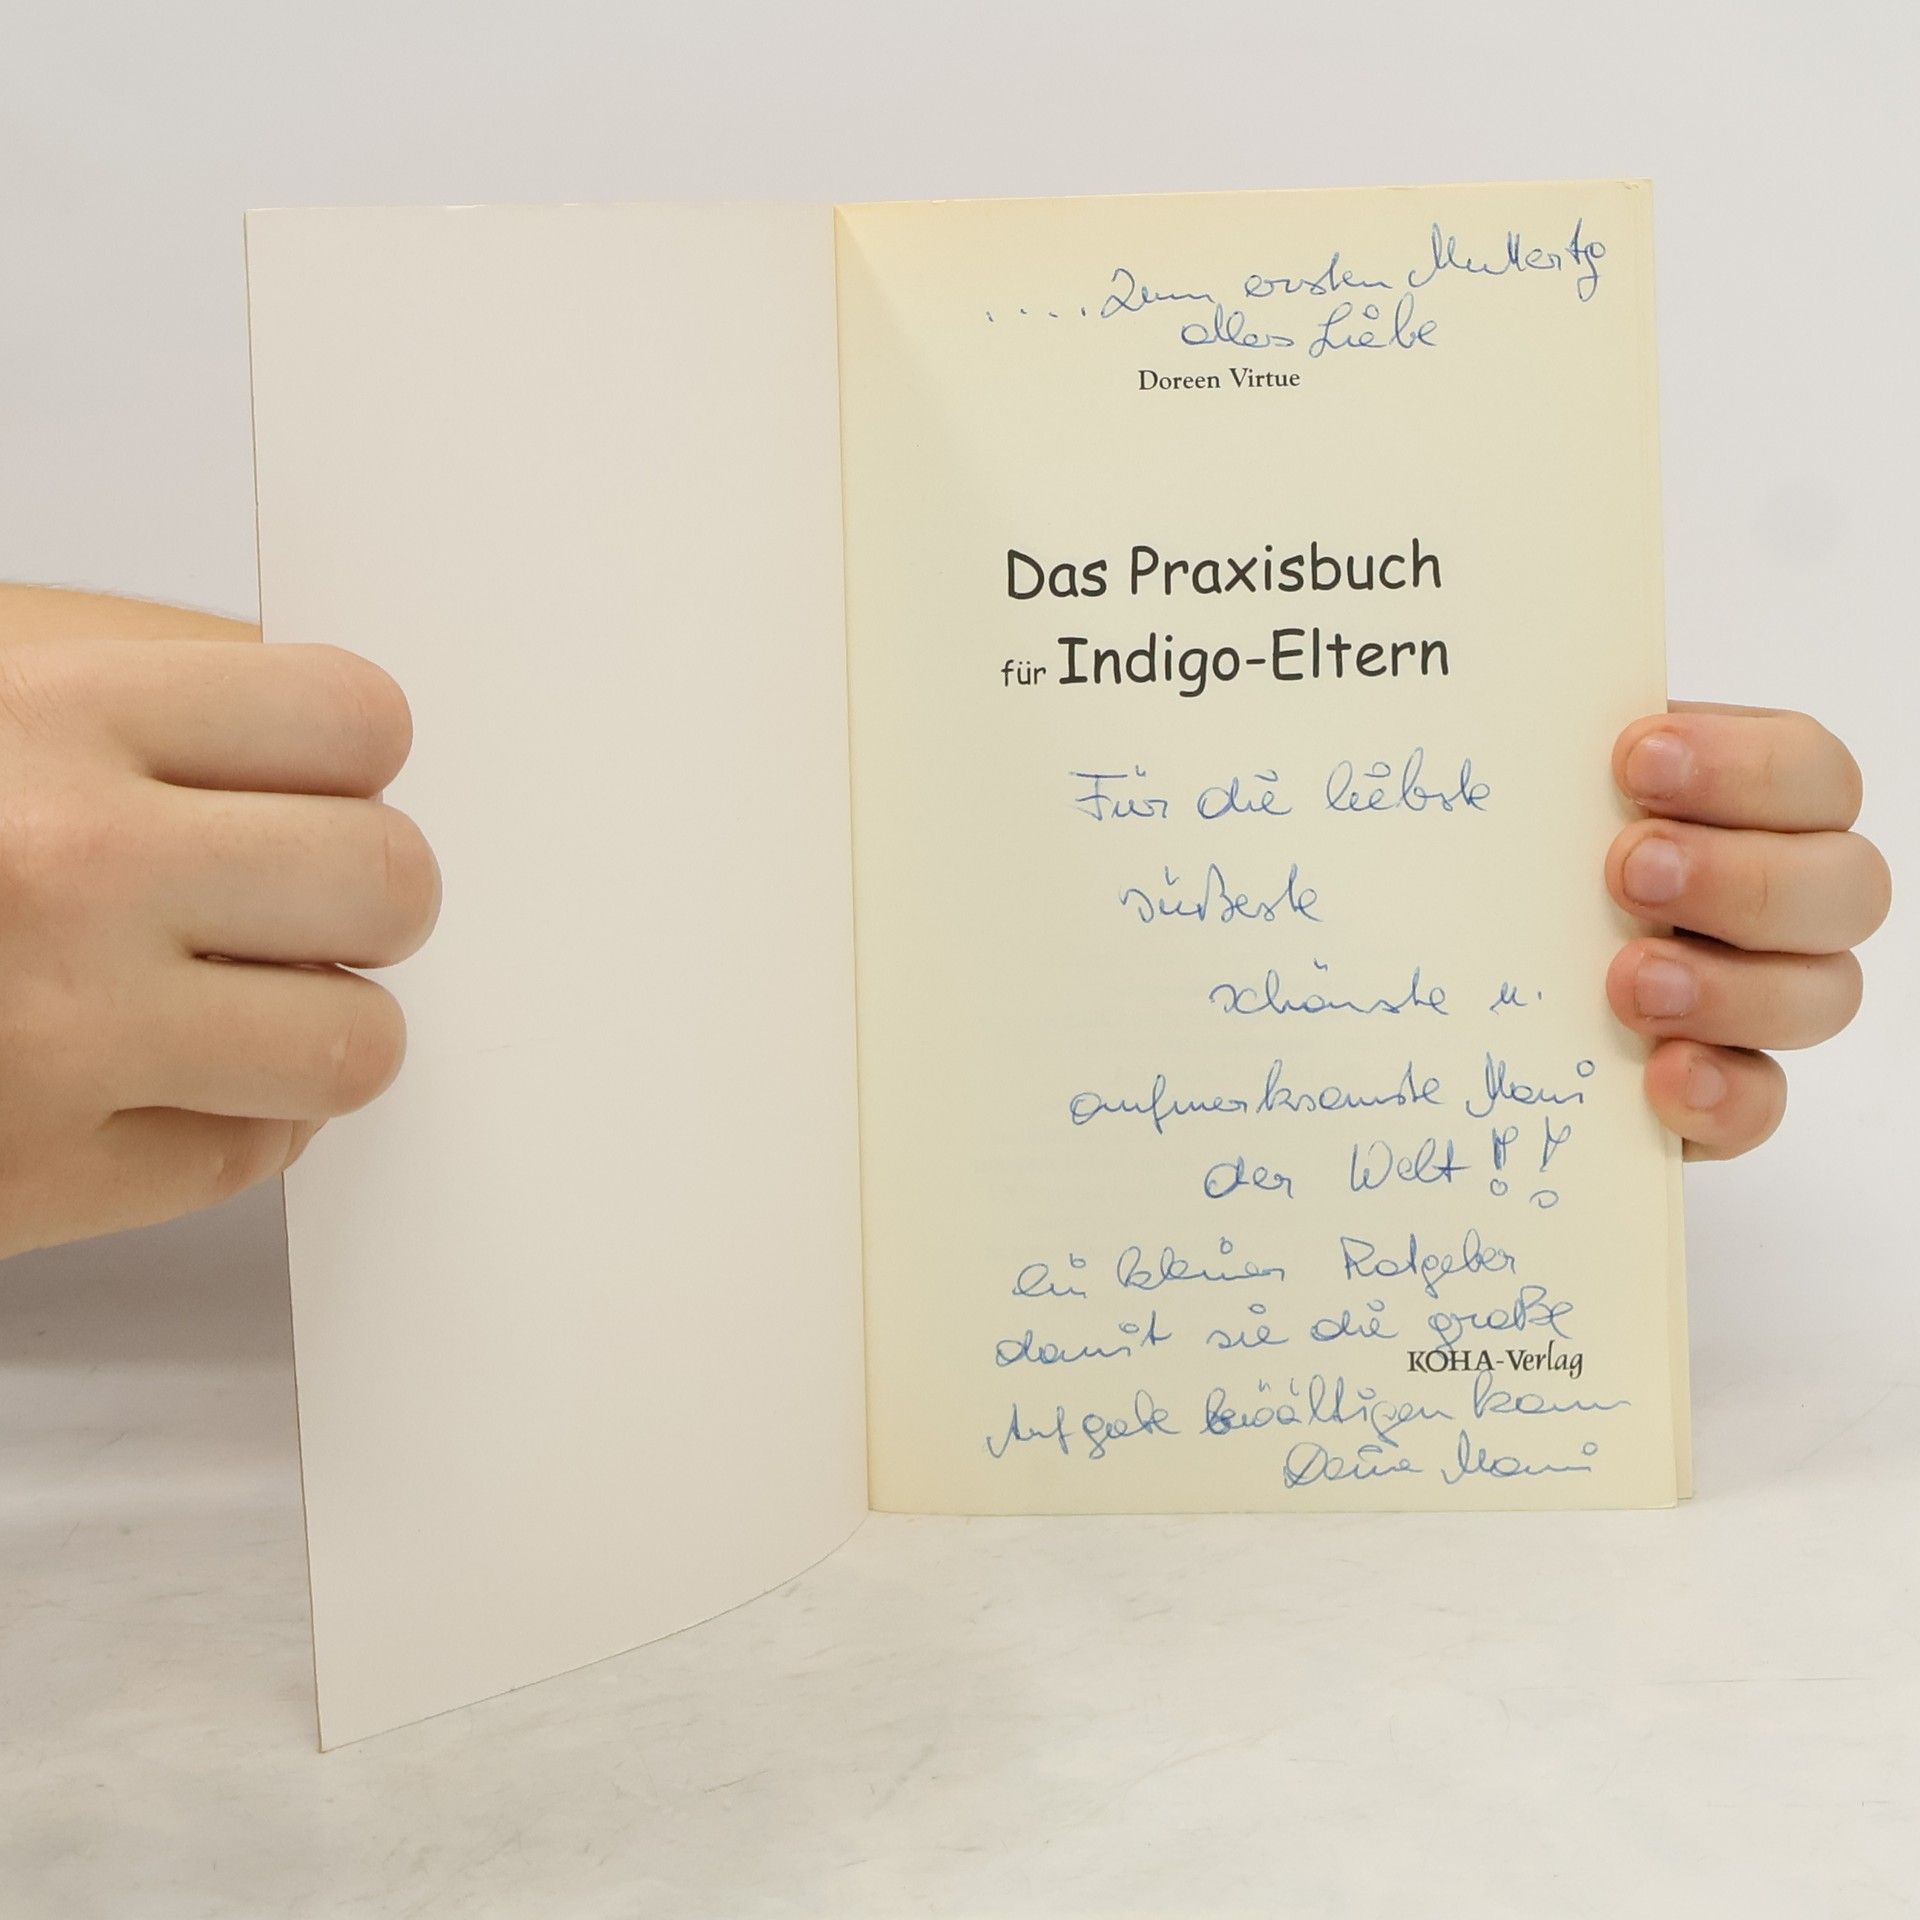 .... zum ersten Muttertg
alles Liebe
Doreen Virtue
Das Praxisbuch
für Indigo-Eltern
Für die liebste
süßeste
schönste u.
aufmerksamste Mami
der Welt!!
ein kleiner Ratgeber
damit sie die große
KOHA-Verlag
Aufgabe bewältigen kann
Deine Mami